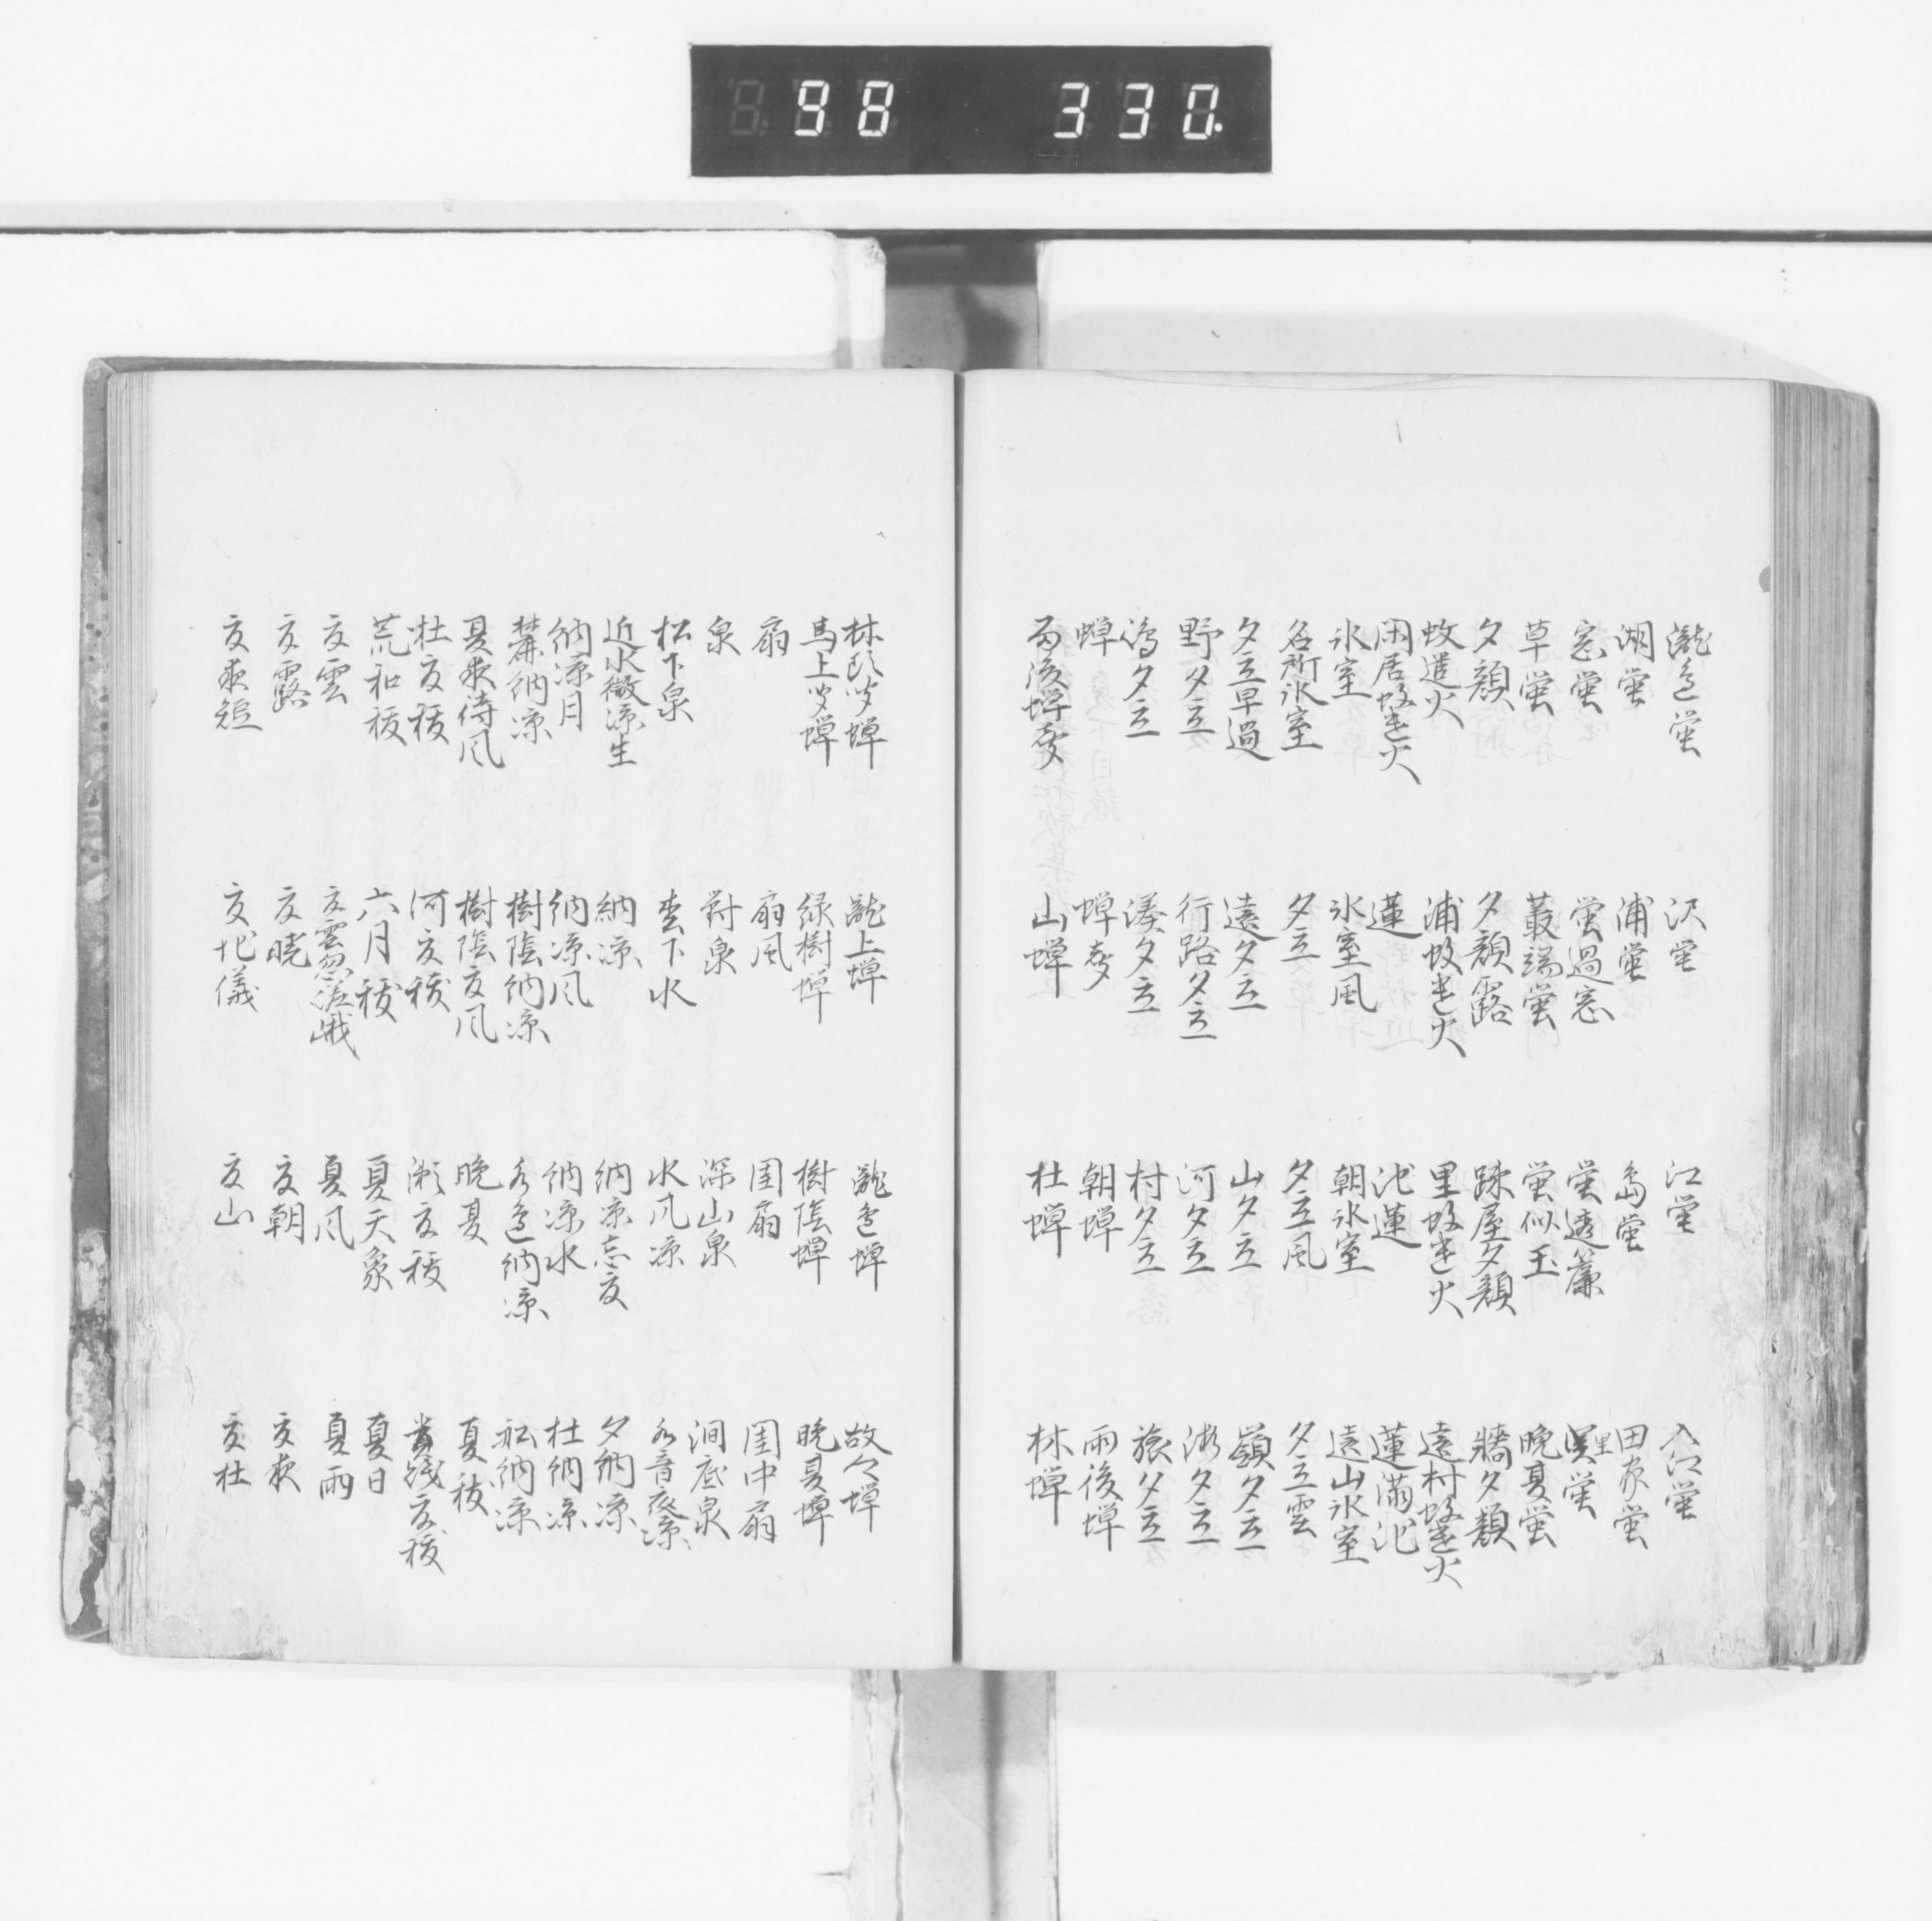 98 330
瀧邊蛍 沢蛍 江蛍 入江蛍
湖蛍 浦蛍 島蛍 田家蛍
窓蛍 蛍過窓 蛍透簾 里蛍
草蛍 叢端蛍 蛍似玉 晩夏蛍
夕顔 夕顔露 疎屋夕顔 牆夕顔
蚊遣火 浦蚊遣火 里蚊遣火 遠村蚊遣火
閑居蚊遣火 蓮 池蓮 蓮満池
氷室 氷室風 朝氷室 遠山氷室
名所氷室 夕立 夕立風 夕立雲
夕立早過 遠夕立 山夕立 嶺夕立
野夕立 行路夕立 河夕立 夕立
夕立 湊夕立 村夕立 旅夕立
蝉 蝉声 朝蝉 雨後蝉
雨後蝉声 山蝉 杜蝉 林蝉
林頭聞蝉 瀧上蝉 瀧邊蝉 故郷蝉
馬上聞蝉 緑樹蝉 樹陰蝉 晩夏蝉
扇 扇風 閨扇 閨中扇
泉 対泉 深山泉 澗底泉
松下泉 松下水 水風凉 水音凉
近水微凉生 納凉 納凉忘夏 夕納凉
納凉月 納凉風 納凉水 杜納凉
麓納凉 樹陰納凉 水邊納凉 船納凉
夏夜待風 樹陰夏風 晩夏 夏祓
杜夏祓 河夏祓 瀬夏祓 貴賤夏祓
荒和祓 六月祓 夏天象 夏日
夏雲 夏雲忽嵯峨 夏風 夏雨
夏露 夏暁 夏朝 夏夜
夏夜短 夏地儀 夏山 夏杜